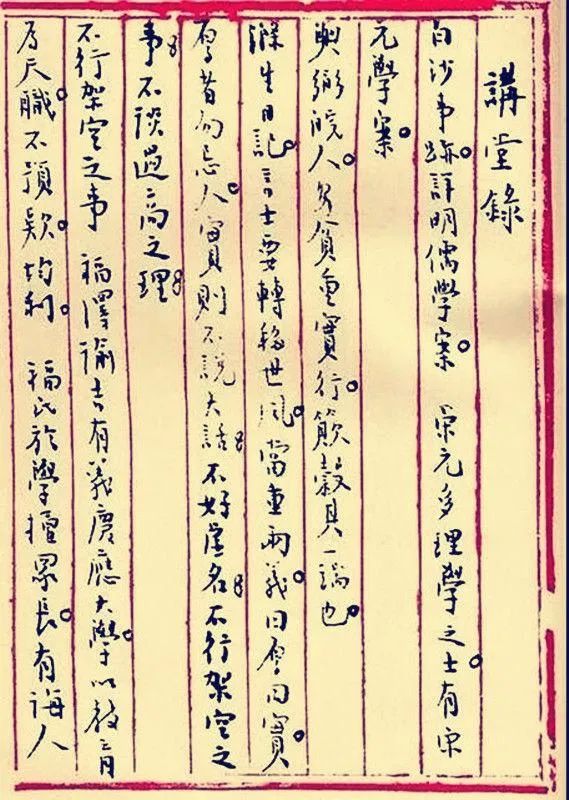 講堂錄
白沙事跡。詳明儒學案。 宋元多理學之士。有宋
元學案。
與弼皖人。多貧重實行。簸穀其一端也。
滌生日記。言士要轉移世風。當重兩義曰厚曰實。
厚者勿忌人。實則不說大話。不好虛名。不行架空之
事。不談過高之理。
不行架空之事 福澤諭吉有義慶應大學。以教育
為天職。不預款均利。 福氏於學擅眾長。有誨人